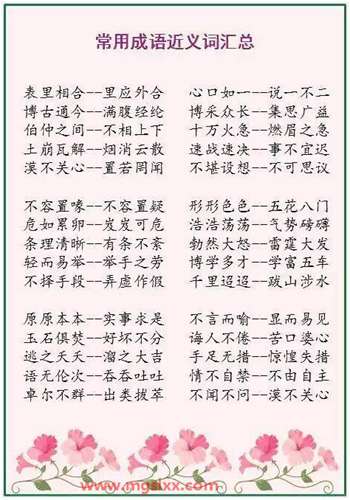 常用成语近义词汇总
表里相合--里应外合 心口如一--说一不二
博古通今--满腹经纶 博采众长--集思广益
伯仲之间--不相上下 十万火急--燃眉之急
土崩瓦解--烟消云散 速战速决--事不宜迟
漠不关心--置若罔闻 不堪设想--不可思议
不容置喙--不容置疑 形形色色--五花八门
危如累卵--岌岌可危 浩浩荡荡--气势磅礴
条理清晰--有条不紊 勃然大怒--雷霆大发
轻而易举--举手之劳 博学多才--学富五车
不择手段--弄虚作假 千里迢迢--跋山涉水
原原本本--实事求是 不言而喻--显而易见
玉石俱焚--好坏不分 诲人不倦--苦口婆心
逃之夭夭--溜之大吉 手足无措--惊惶失措
语无伦次--吞吞吐吐 情不自禁--不由自主
卓尔不群--出类拔萃 不闻不问--漠不关心
www.mgsixx.com